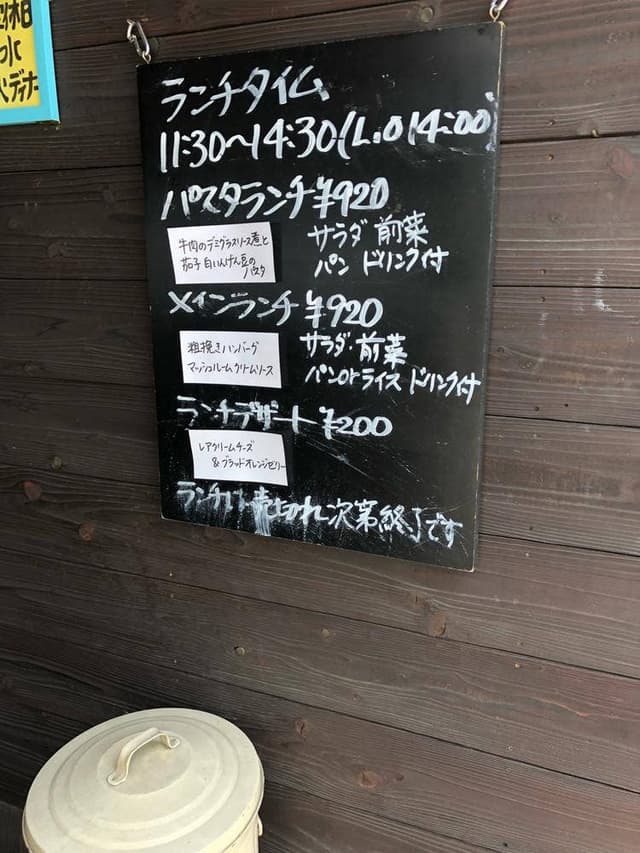 定休日
水
ディナー
ランチタイム
11:30〜14:30(L.O 14:00)
パスタランチ ¥920
牛肉のデミグラスソース煮と
茄子 白いんげん豆の
パスタ
サラダ 前菜
パン ドリンク付
メインランチ ¥920
粗挽きハンバーグ
マッシュルームクリームソース
サラダ・前菜
パンorライス ドリンク付
ランチデザート ¥200
レアクリームチーズ
&ブラッドオレンジゼリー
ランチは売り切れ次第終了です